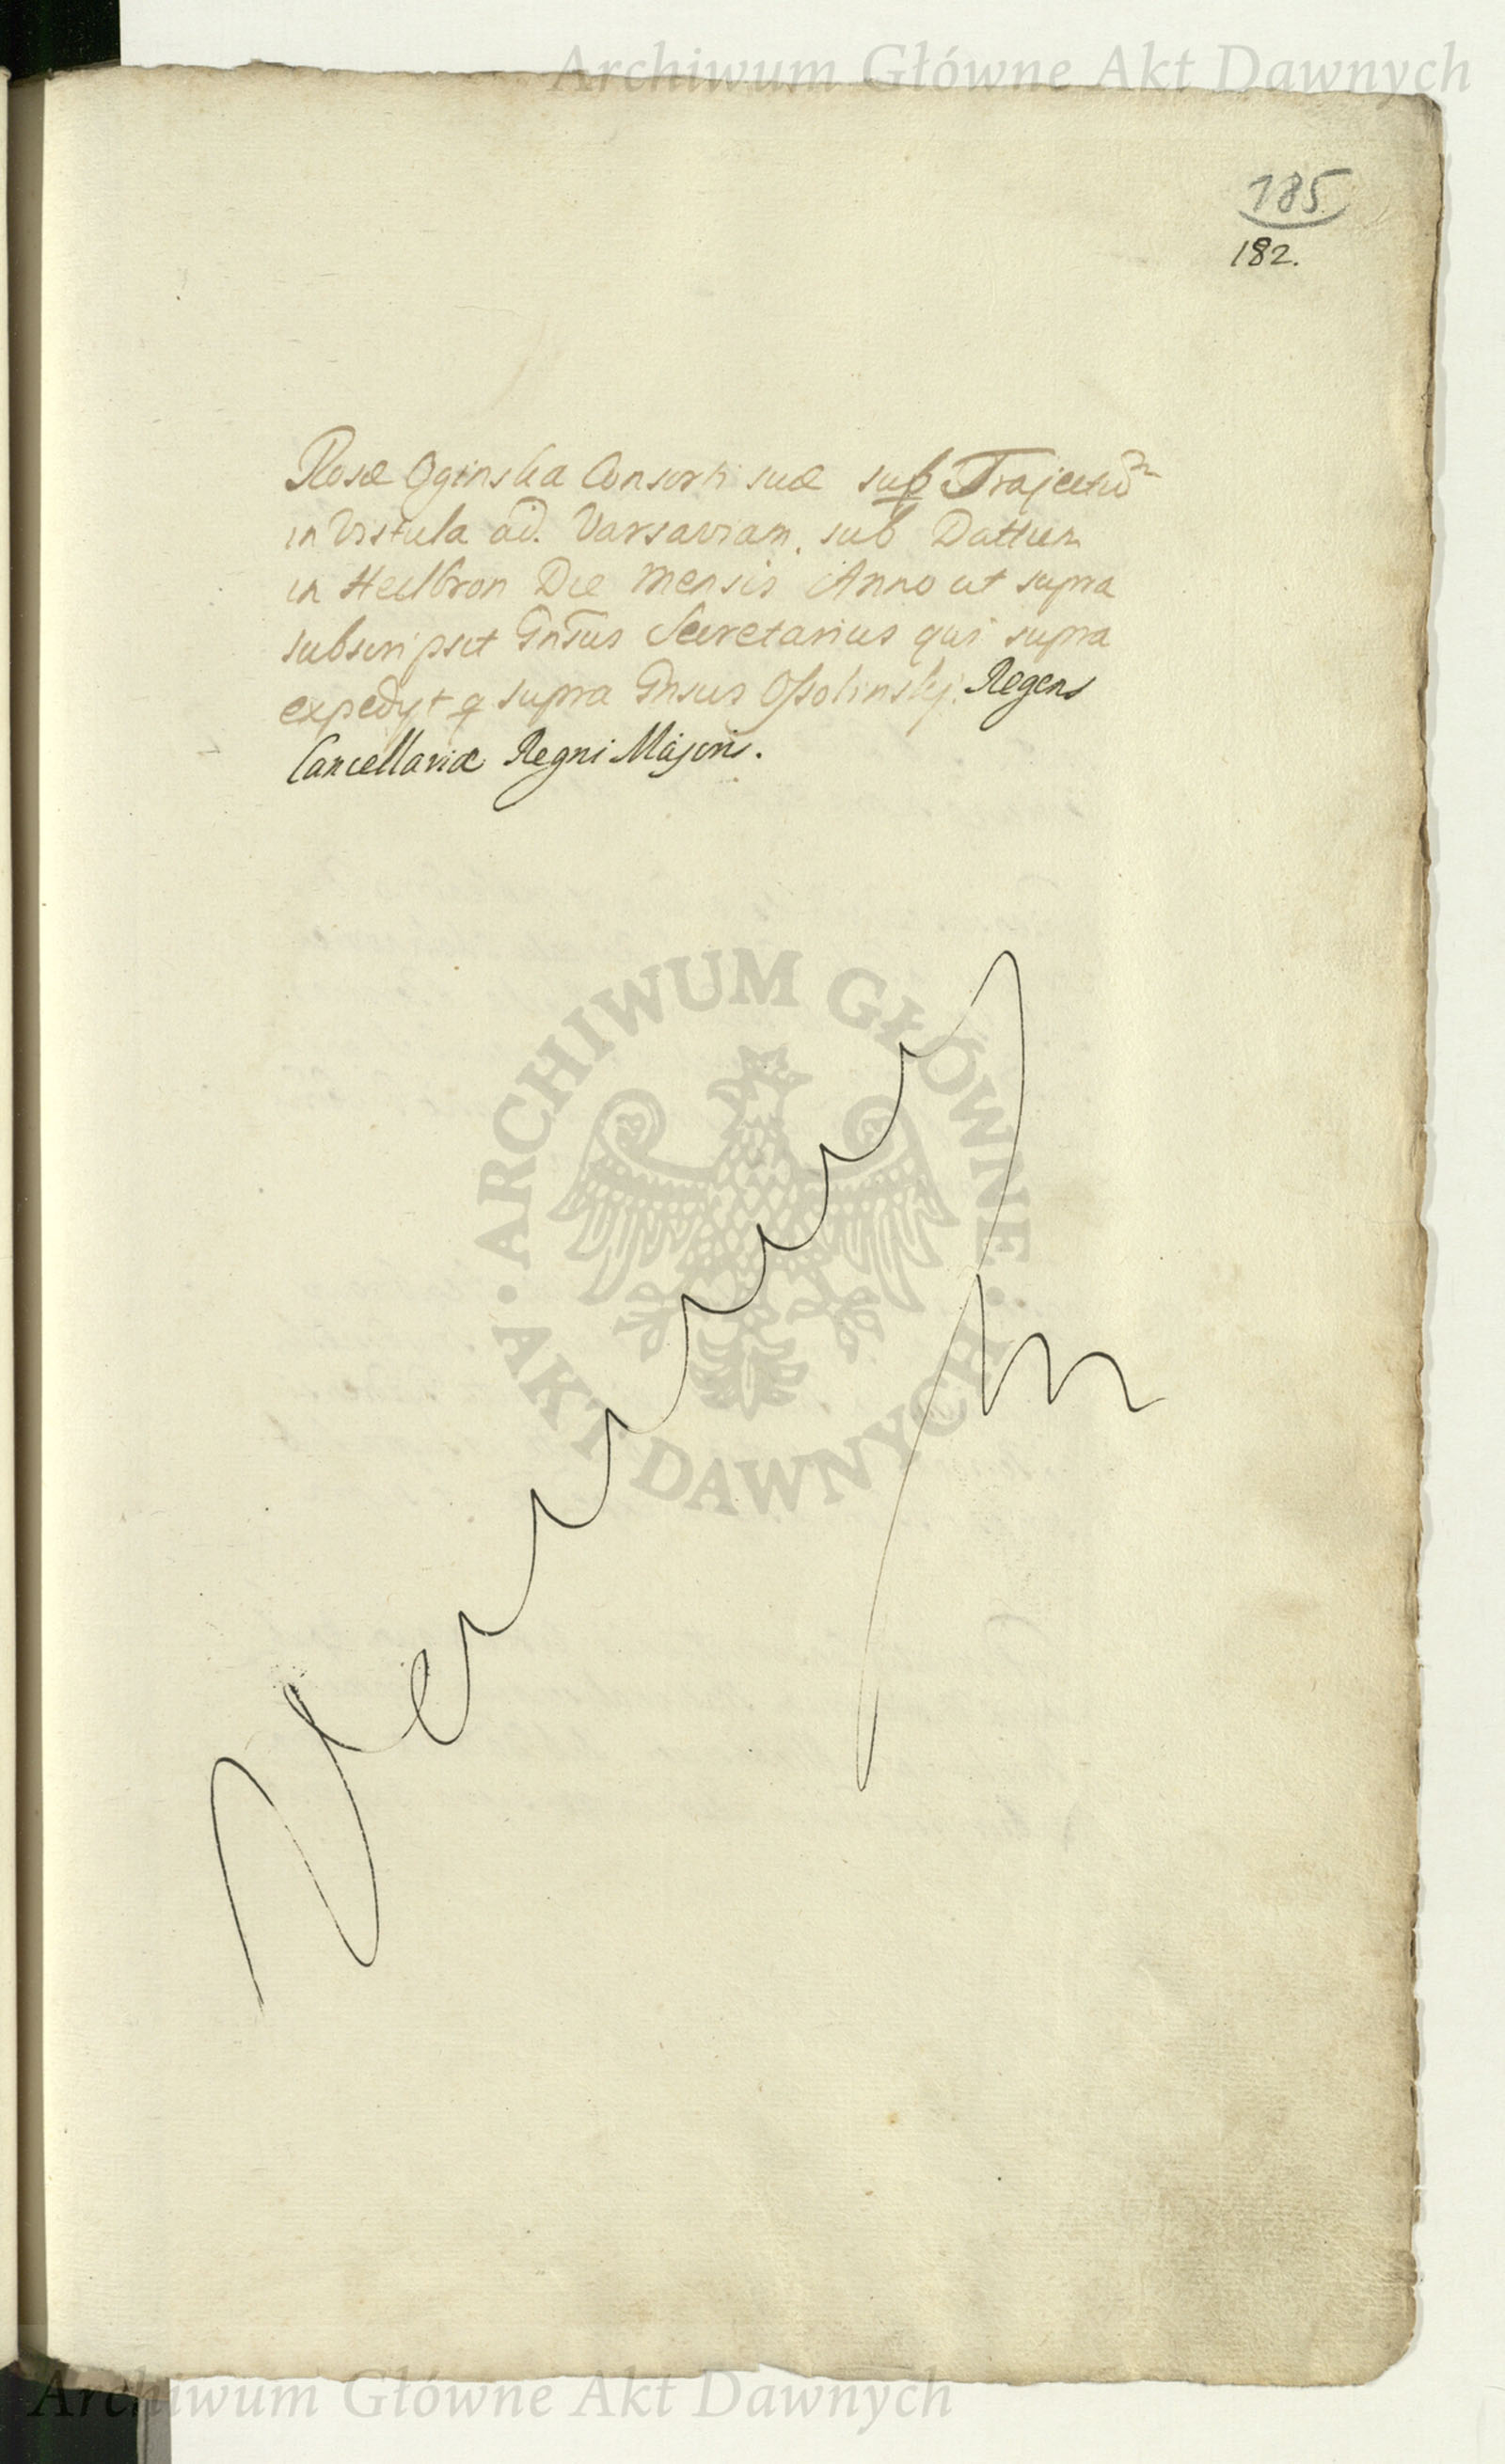 Archiwum Główne Akt Dawnych
185.
182.
Rosæ Oginska Consorti suæ sup Trajectu
in Vistula ad. Varsaviam. sub Dattum
in Heilbron Die Mensis Anno ut supra
subscripsit Gnsus Secretarius qui supra
expedyt q supra Gnsus Ossolinskj. Regens
Cancellariæ Regni Majoris.
ARCHIWUM GŁÓWNE
AKT DAWNYCH
Archiwum Główne Akt Dawnych